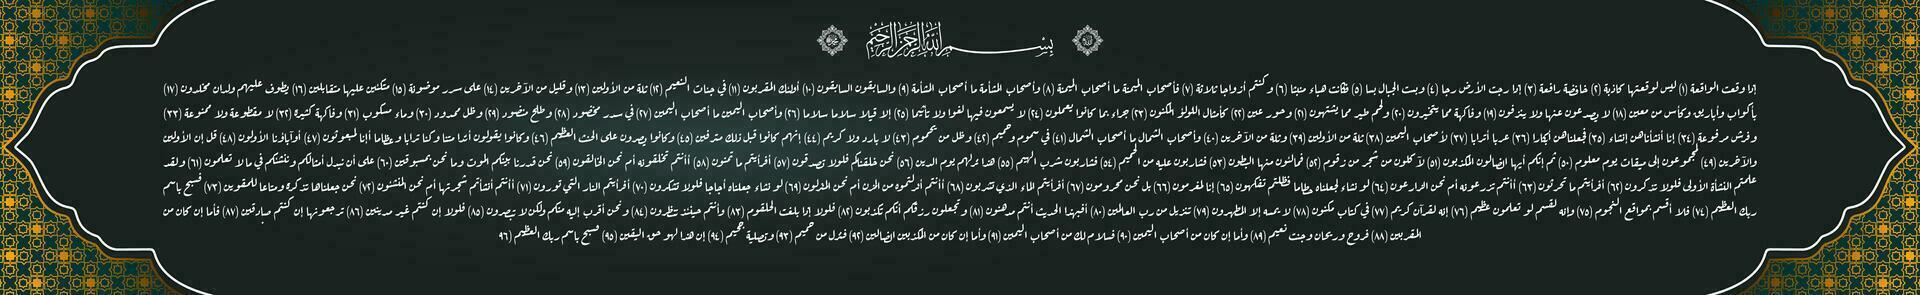 بسم الله الرحمن الرحيم
إذا وقعت الواقعة (١) ليس لوقعتها كاذبة (٢) خافضة رافعة (٣) إذا رجت الأرض رجا (٤) وبست الجبال بسا (٥) فكانت هباء منبثا (٦) وكنتم أزواجا ثلاثة (٧) فأصحاب الميمنة ما أصحاب الميمنة (٨) وأصحاب المشأمة ما أصحاب المشأمة (٩) والسابقون السابقون (١٠) أولئك المقربون (١١) في جنات النعيم (١٢) ثلة من الأولين (١٣) وقليل من الآخرين (١٤) على سرر موضونة (١٥) متكئين عليها متقابلين (١٦) يطوف عليهم ولدان مخلدون (١٧)
بأكواب وأباريق وكأس من معين (١٨) لا يصدعون عنها ولا ينزفون (١٩) وفاكهة مما يتخيرون (٢٠) ولحم طير مما يشتهون (٢١) وحور عين (٢٢) كأمثال اللؤلؤ المكنون (٢٣) جزاء بما كانوا يعملون (٢٤) لا يسمعون فيها لغوا ولا تأثيما (٢٥) إلا قيلا سلاما سلاما (٢٦) وأصحاب اليمين ما أصحاب اليمين (٢٧) في سدر مخضود (٢٨) وطلح منضود (٢٩) وظل ممدود (٣٠) وماء مسكوب (٣١) وفاكهة كثيرة (٣٢) لا مقطوعة ولا ممنوعة (٣٣)
وفرش مرفوعة (٣٤) إنا أنشأناهن إنشاء (٣٥) فجعلناهن أبكارا (٣٦) عربا أترابا (٣٧) لأصحاب اليمين (٣٨) ثلة من الأولين (٣٩) وثلة من الآخرين (٤٠) وأصحاب الشمال ما أصحاب الشمال (٤١) في سموم وحميم (٤٢) وظل من يحموم (٤٣) لا بارد ولا كريم (٤٤) إنهم كانوا قبل ذلك مترفين (٤٥) وكانوا يصرون على الحنث العظيم (٤٦) وكانوا يقولون أئذا متنا وكنا ترابا وعظاما أإنا لمبعوثون (٤٧) أوآباؤنا الأولون (٤٨) قل إن الأولين
والآخرين (٤٩) لمجموعون إلى ميقات يوم معلوم (٥٠) ثم إنكم أيها الضالون المكذبون (٥١) لآكلون من شجر من زقوم (٥٢) فمالئون منها البطون (٥٣) فشاربون عليه من الحميم (٥٤) فشاربون شرب الهيم (٥٥) هذا نزلهم يوم الدين (٥٦) نحن خلقناكم فلولا تصدقون (٥٧) أفرأيتم ما تمنون (٥٨) أأنتم تخلقونه أم نحن الخالقون (٥٩) نحن قدرنا بينكم الموت وما نحن بمسبوقين (٦٠) على أن نبدل أمثالكم وننشئكم في ما لا تعلمون (٦١) ولقد
علمتم النشأة الأولى فلولا تذكرون (٦٢) أفرأيتم ما تحرثون (٦٣) أأنتم تزرعونه أم نحن الزارعون (٦٤) لو نشاء لجعلناه حطاما فظلتم تفكهون (٦٥) إنا لمغرمون (٦٦) بل نحن محرومون (٦٧) أفرأيتم الماء الذي تشربون (٦٨) أأنتم أنزلتموه من المزن أم نحن المنزلون (٦٩) لو نشاء جعلناه أجاجا فلولا تشكرون (٧٠) أفرأيتم النار التي تورون (٧١) أأنتم أنشأتم شجرتها أم نحن المنشئون (٧٢) نحن جعلناها تذكرة ومتاعا للمقوين (٧٣) فسبح باسم
ربك العظيم (٧٤) فلا أقسم بمواقع النجوم (٧٥) وإنه لقسم لو تعلمون عظيم (٧٦) إنه لقرآن كريم (٧٧) في كتاب مكنون (٧٨) لا يمسه إلا المطهرون (٧٩) تنزيل من رب العالمين (٨٠) أفبهذا الحديث أنتم مدهنون (٨١) وتجعلون رزقكم أنكم تكذبون (٨٢) فلولا إذا بلغت الحلقوم (٨٣) وأنتم حينئذ تنظرون (٨٤) ونحن أقرب إليه منكم ولكن لا تبصرون (٨٥) فلولا إن كنتم غير مدينين (٨٦) ترجعونها إن كنتم صادقين (٨٧) فأما إن كان من
المقربين (٨٨) فروح وريحان وجنت نعيم (٨٩) وأما إن كان من أصحاب اليمين (٩٠) فسلام لك من أصحاب اليمين (٩١) وأما إن كان من المكذبين الضالين (٩٢) فنزل من حميم (٩٣) وتصلية جحيم (٩٤) إن هذا لهو حق اليقين (٩٥) فسبح باسم ربك العظيم (٩٦